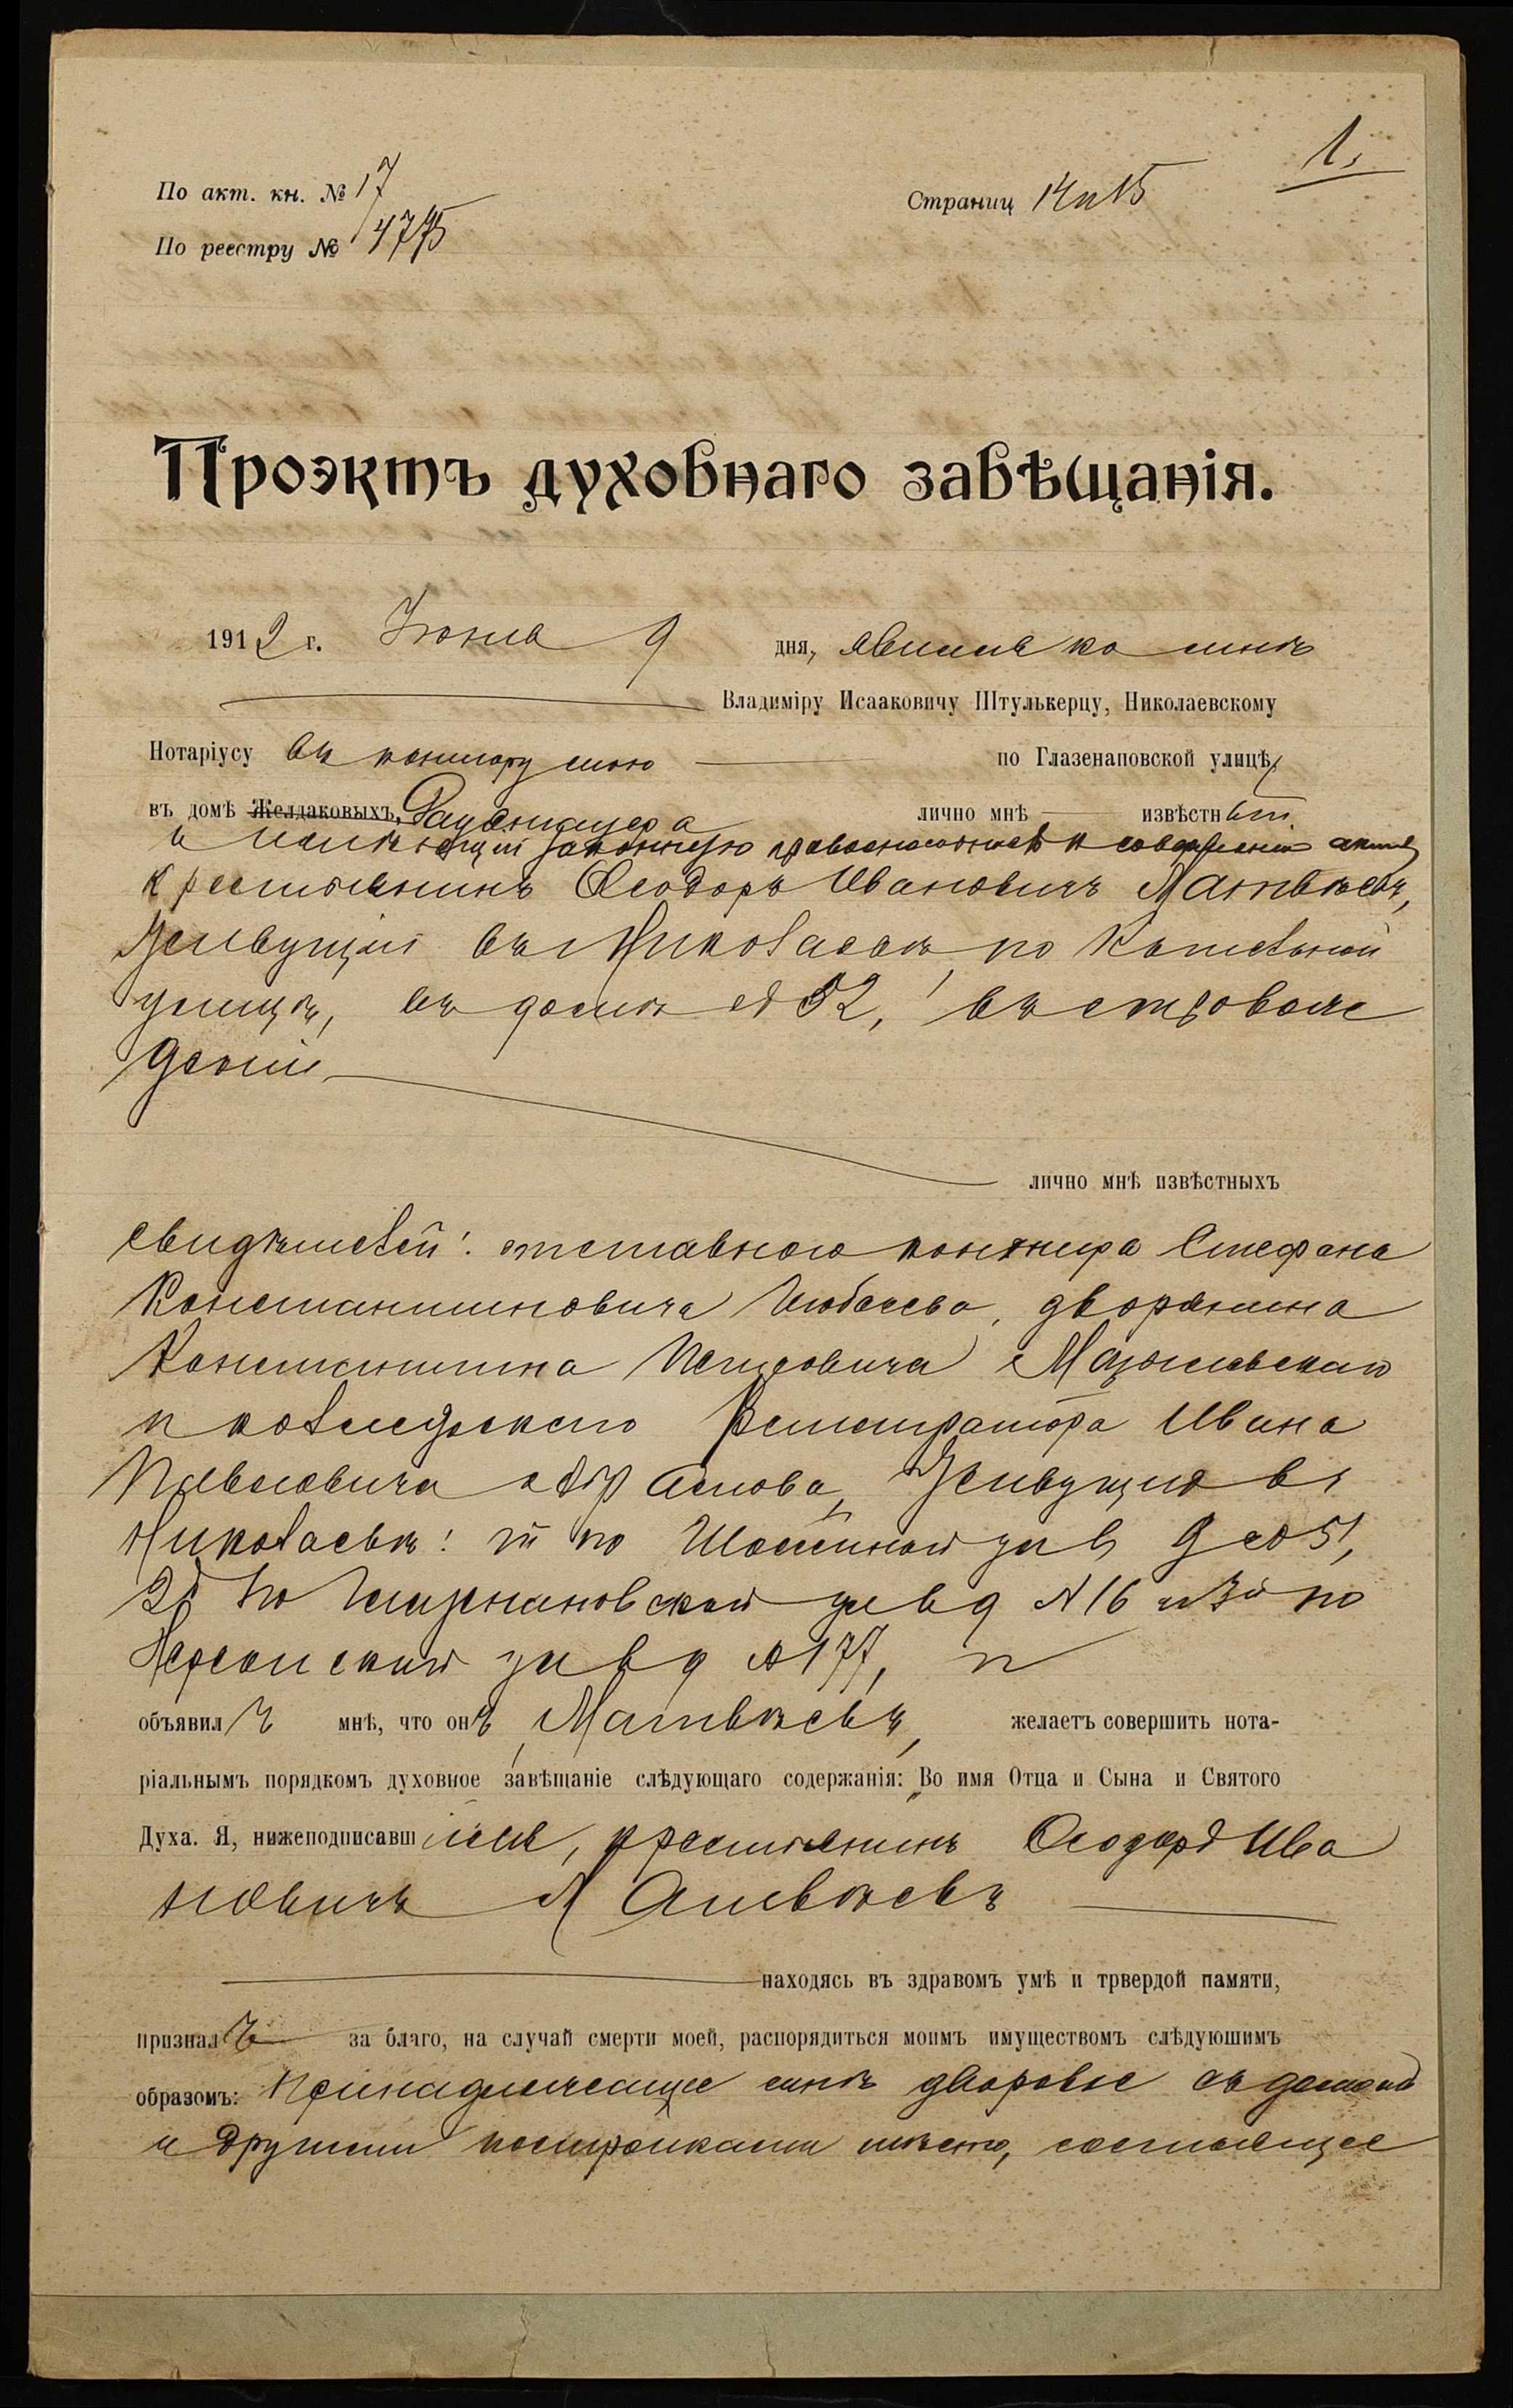 1.
По акт. кн. № 17
Страниц 14 и 15
По реестру № 4775
Проэктъ духовнаго завѣщанія.
1912 г. Іюня 9 дня, явился ко мнѣ
Владиміру Исааковичу Штулькерцу, Николаевскому
Нотаріусу въ контору мою по Глазенаповской улицѣ,
въ домѣ Желдаковыхъ, лично мнѣ извѣстный
и имѣющій законную правоспособность къ совершенію актовъ
крестьянинъ Ѳеодоръ Ивановичъ Матвѣевъ,
живущій въ Николаевѣ, по улицѣ, въ домѣ № 52, въ сопровож-
деніи
лично мнѣ извѣстныхъ
свидѣтелей: отставного Стефана
Константиновича дворянина
Константина Петровича
и коллежскаго Регистратора Ивана
Павловича живущихъ въ
Николаевѣ: 1й по ул в д № 51,
2й по ул в д № 16 и 3й по
Херсонской ул в д № 177, и
объявилъ мнѣ, что онъ, Матвѣевъ, желаетъ совершить нота-
ріальнымъ порядкомъ духовное завѣщаніе слѣдующаго содержанія: „Во имя Отца и Сына и Святого
Духа. Я, нижеподписавшійся, крестьянинъ Ѳеодоръ Ива
новичъ Матвѣевъ
находясь въ здравомъ умѣ и трвердой памяти,
призналъ за благо, на случай смерти моей, распорядиться моимъ имуществомъ слѣдуюшимъ
образомъ: Принадлежащее мнѣ дворовое съ домомъ
и другими постройками мѣсто, состоящее